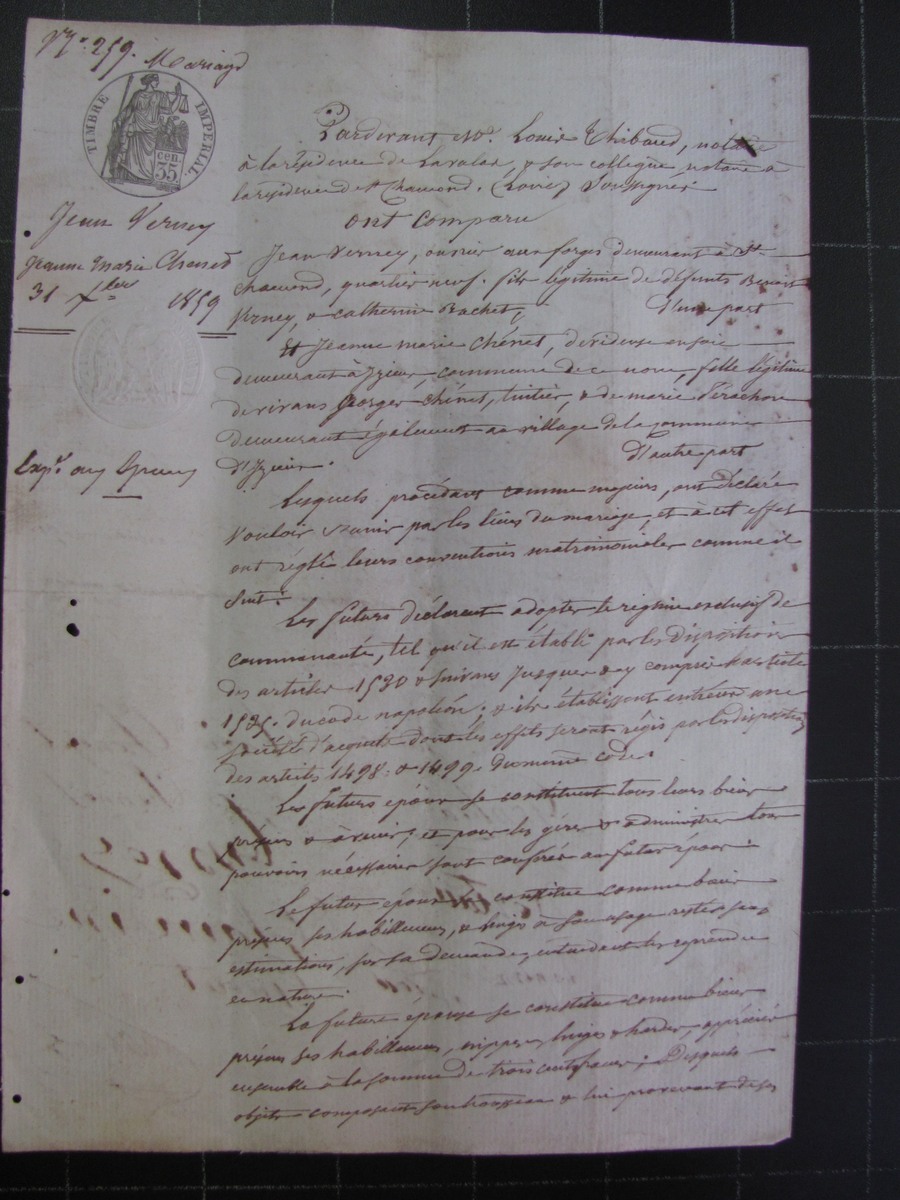 N° 259. Mariage
TIMBRE IMPÉRIAL
35 cen.
Jean Verney
Jeanne Marie Chenet
31 7bre 1859
Expé. aux époux
Pardevant Me. Louis Thibaud, notaire
à la résidence de Lavalas, & son collègue, notaire à
la résidence de St Chamond. (Loire) Soussignés
ont comparu
Jean Verney, ouvrier aux forges demeurant à St.
Chamond, quartier neuf. fils légitime de défunts Benoit
Verney, & Catherine Bachet, d'une part
Et Jeanne Marie Chénet, dévideuse en soie
demeurant à Izieux, commune de ce nom, fille légitime
de vivans Georges Chénet, tintier, & de Marie Pérachon
demeurant également au village de la commune
d'Izieux. d'autre part
Lesquels procédant comme majeurs, ont déclaré
vouloir s'unir par les liens du mariage, et à cet effet
ont réglé leurs conventions matrimoniales comme il
suit:
Les futurs déclarent adopter le régime exclusif de
communauté, tel qu'il est établi par les dispositions
des articles 1530 & suivans jusques & y compris l'article
1535. du code napoléon. & ils établissent entr'eux une
société d'acquets dont les effets seront régis par les dispositions
des articles 1498. & 1499. du même code.
Les futurs époux se constituent tous leurs biens
présens & à venir, et pour les gérer & administrer tous
pouvoirs nécessaires sont conférés au futur époux.
Le futur époux se constitue comme biens
présens ses habillemens, & linges à son usage restés sans
estimations, sur sa demande, entendant les reprendre
en nature.
La future épouse se constitue comme biens
présens ses habillemens, nippes, linges & hardes, appréciés
ensemble à la somme de trois cents francs; Desquels
objets composant son trousseau & lui provenant de ses